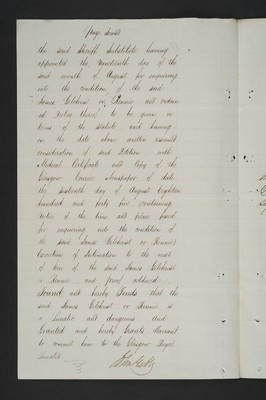 the said Sheriff Substitute having
appointed the nineteenth day of the
said month of August for enquiring
into the condition of the said
Janet Gilchrist or Rennie and ordered
Notice thereof to be given in
terms of the statute and having
on the date above written resumed
consideration of said Petition with
Medical Certificate and Copy of the
Glasgow Courier Newspaper of date
the sixteenth day of August Eighteen
hundred and forty five containing
Notice of the time and place fixed
for enquiring into the condition of
the said Janet Gilchrist or Rennie,
Execution of Intimation to the next
of kin of the said Janet Gilchrist
or Rennie and proof adduced,
Found and hereby Finds that the
said Janet Gilchrist or Rennie is
a Lunatic and dangerous and
Granted and hereby Grants Warrant
to commit her to the Glasgow Royal
Lunatic